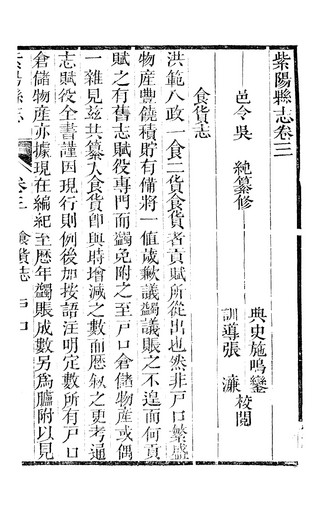 紫陽縣志卷三
邑令吳 純纂修
典史施鳴鑾
訓導張 濂 校閱
食貨志
洪範八政一食二貨食貨者貢賦所從出也然非戶口繁盛
物産豐饒積貯有備將一值歲歉議蠲議賑之不遑而何貢
賦之有舊志賦役專門而蠲免附之至戶口倉儲物産或偶
一雜見茲共纂入食貨卽與時增減之數而歷叙之更考通
志賦役全書謹因現行則例後加按語汪明定數所有戶口
倉儲物産亦據現在編紀至歴年蠲賬成數另為臚附以見
紫陽縣志 卷三 食貨志 戶口